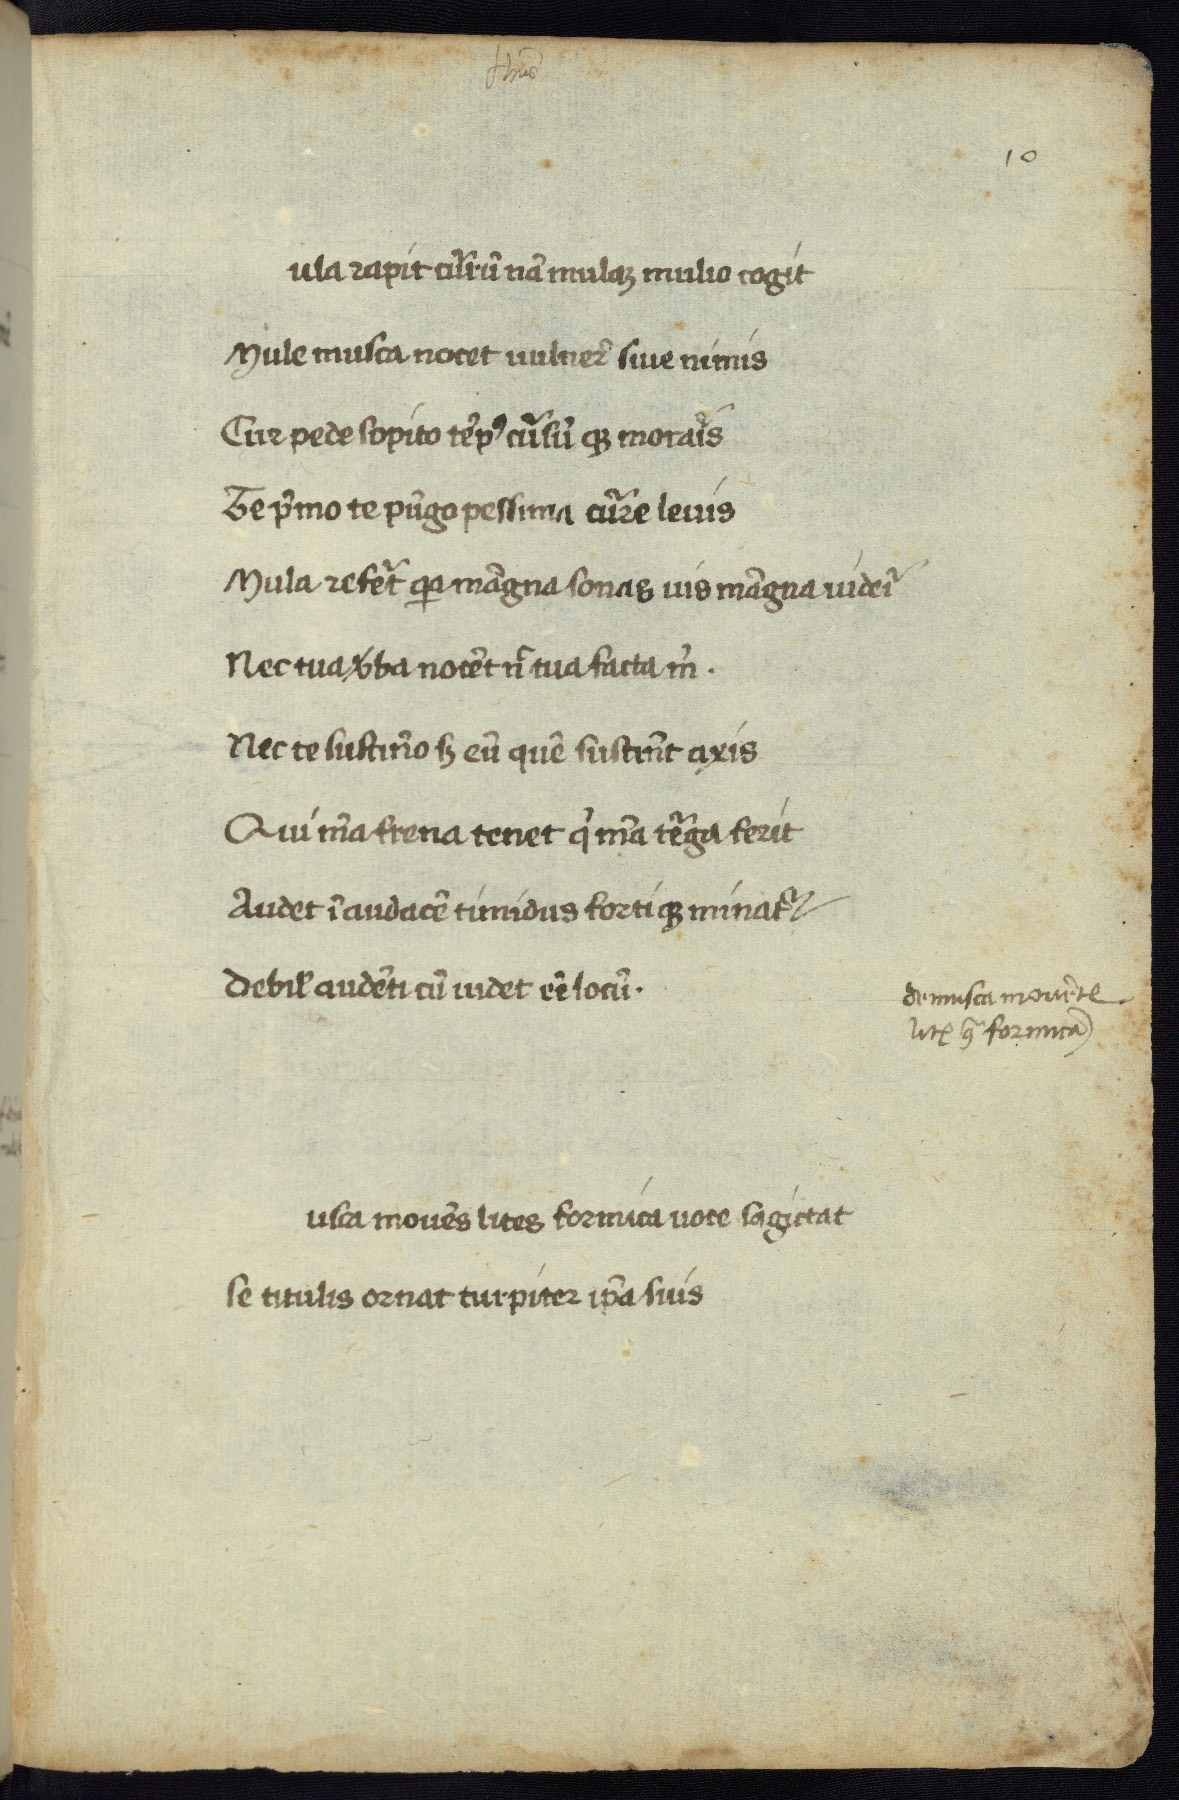 10
ula rapit cur̃ũ nã mulaꝫ mulio cogit
Mule musca nocet uulner̃ siue nimis
Cur pede sopito tẽpꝰ cur̃sũ qꝫ moraris
Te p̃mo te pũgo pessima cur̃e leuis
Mula refert̃ qꝛ mãgna sonas uis mãgna uideri
Nec tua ỽba nocẽt ñ tua facta m̃.
Nec te sustiñeo sꝫ eũ quẽ sustinẽt axis
Qui m̃a frena tenet q̇ m̃a ter̃ga ferit
Audet ĩ audacẽ timidus fortiqꝫ minat̃
Debil̃ audẽti cũ uidet eẽ locũ.
de musca mouẽte
lites 9̃ formicã
usca mouẽs lites formica uoce sagittat
se titulis ornat turpiter ip̃a suis